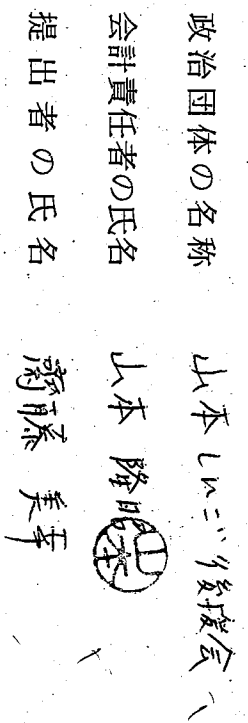 政治団体の名称 山本しんごり後援会
会計責任者の氏名 山本 隆昭
提出者の氏名 齋藤 美幸